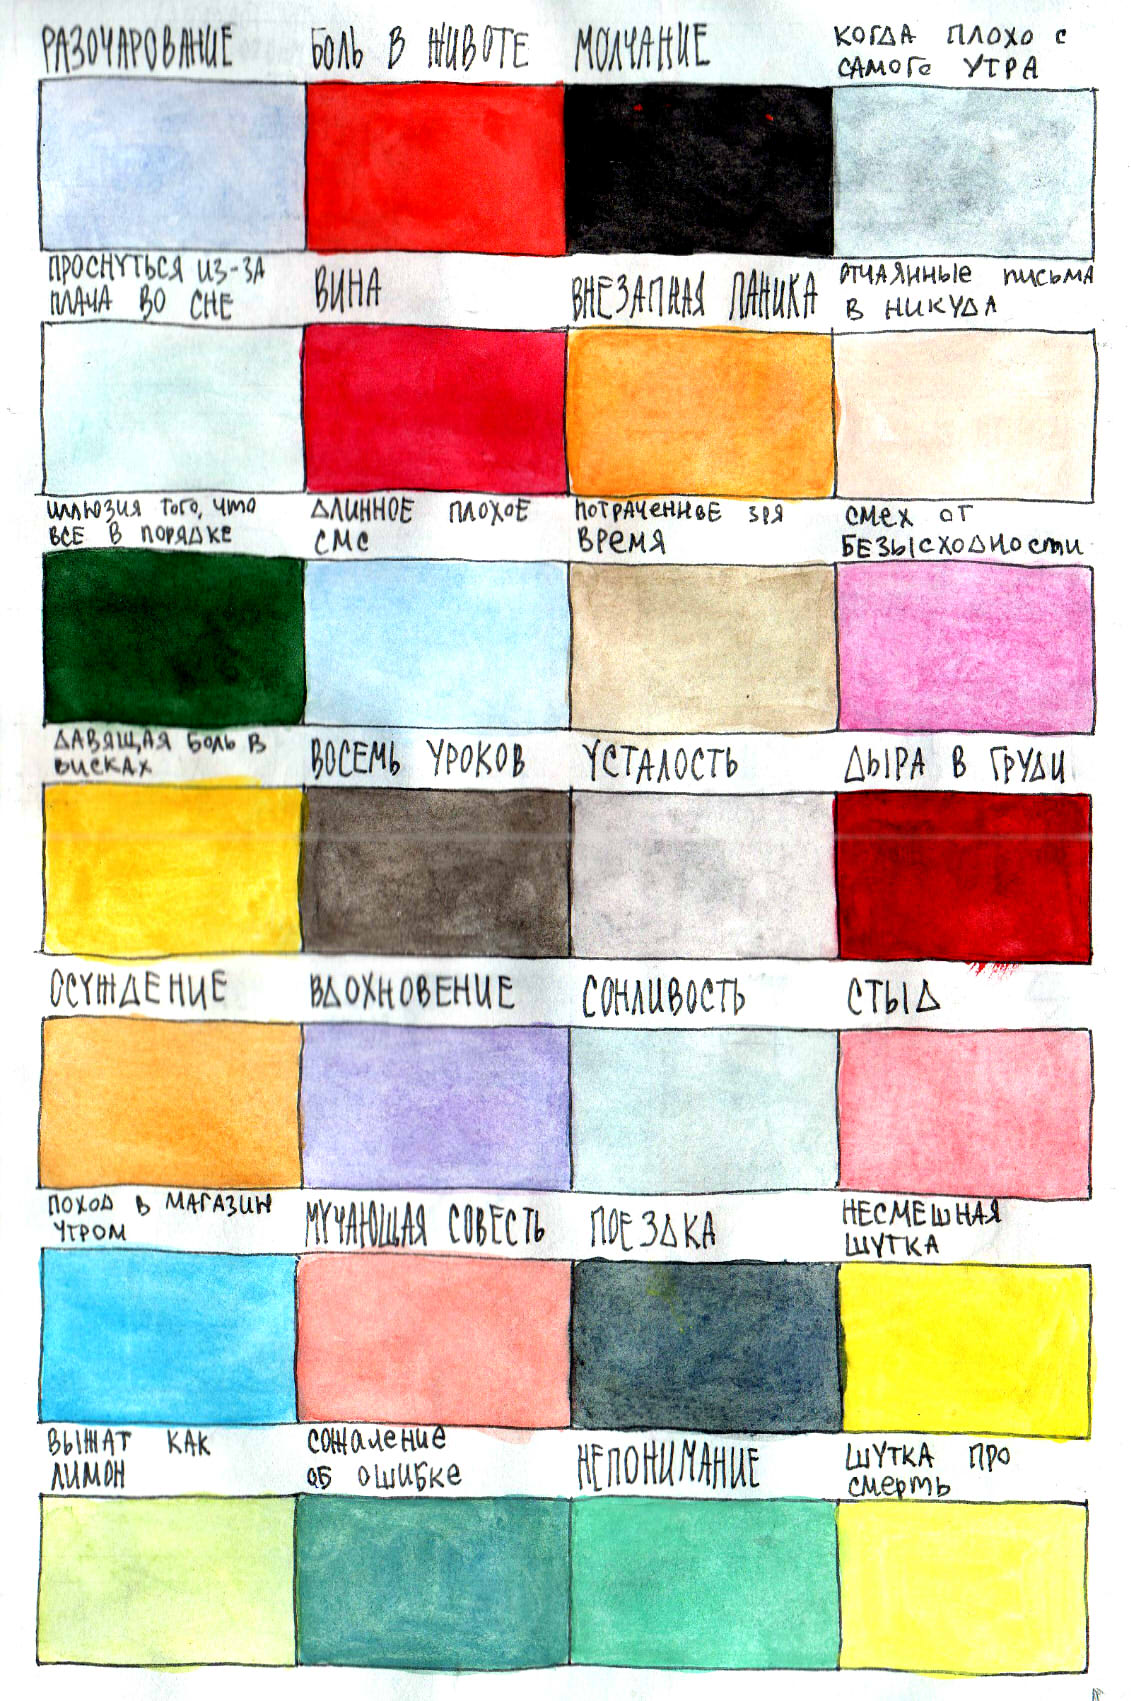 РАЗОЧАРОВАНИЕ
БОЛЬ В ЖИВОТЕ
МОЛЧАНИЕ
КОГДА ПЛОХО С
САМОГО УТРА
ПРОСНУТЬСЯ ИЗ-ЗА
ПЛАЧА ВО СНЕ
ВИНА
ВНЕЗАПНАЯ ПАНИКА
ОТЧАЯННЫЕ ПИСЬМА
В НИКУДА
ИЛЛЮЗИЯ ТОГО, ЧТО
ВСЕ В ПОРЯДКЕ
ДЛИННОЕ ПЛОХОЕ
СМС
ПОТРАЧЕННОЕ ЗРЯ
ВРЕМЯ
СМЕХ ОТ
БЕЗЫСХОДНОСТИ
ДАВЯЩАЯ БОЛЬ В
ВИСКАХ
ВОСЕМЬ УРОКОВ
УСТАЛОСТЬ
ДЫРА В ГРУДИ
ОСУЖДЕНИЕ
ВДОХНОВЕНИЕ
СОНЛИВОСТЬ
СТЫД
ПОХОД В МАГАЗИН
УТРОМ
МУЧАЮЩАЯ СОВЕСТЬ
ПОЕЗДКА
НЕСМЕШНАЯ
ШУТКА
ВЫЖАТ КАК
ЛИМОН
СОЖАЛЕНИЕ
ОБ ОШИБКЕ
НЕПОНИМАНИЕ
ШУТКА ПРО
СМЕРТЬ